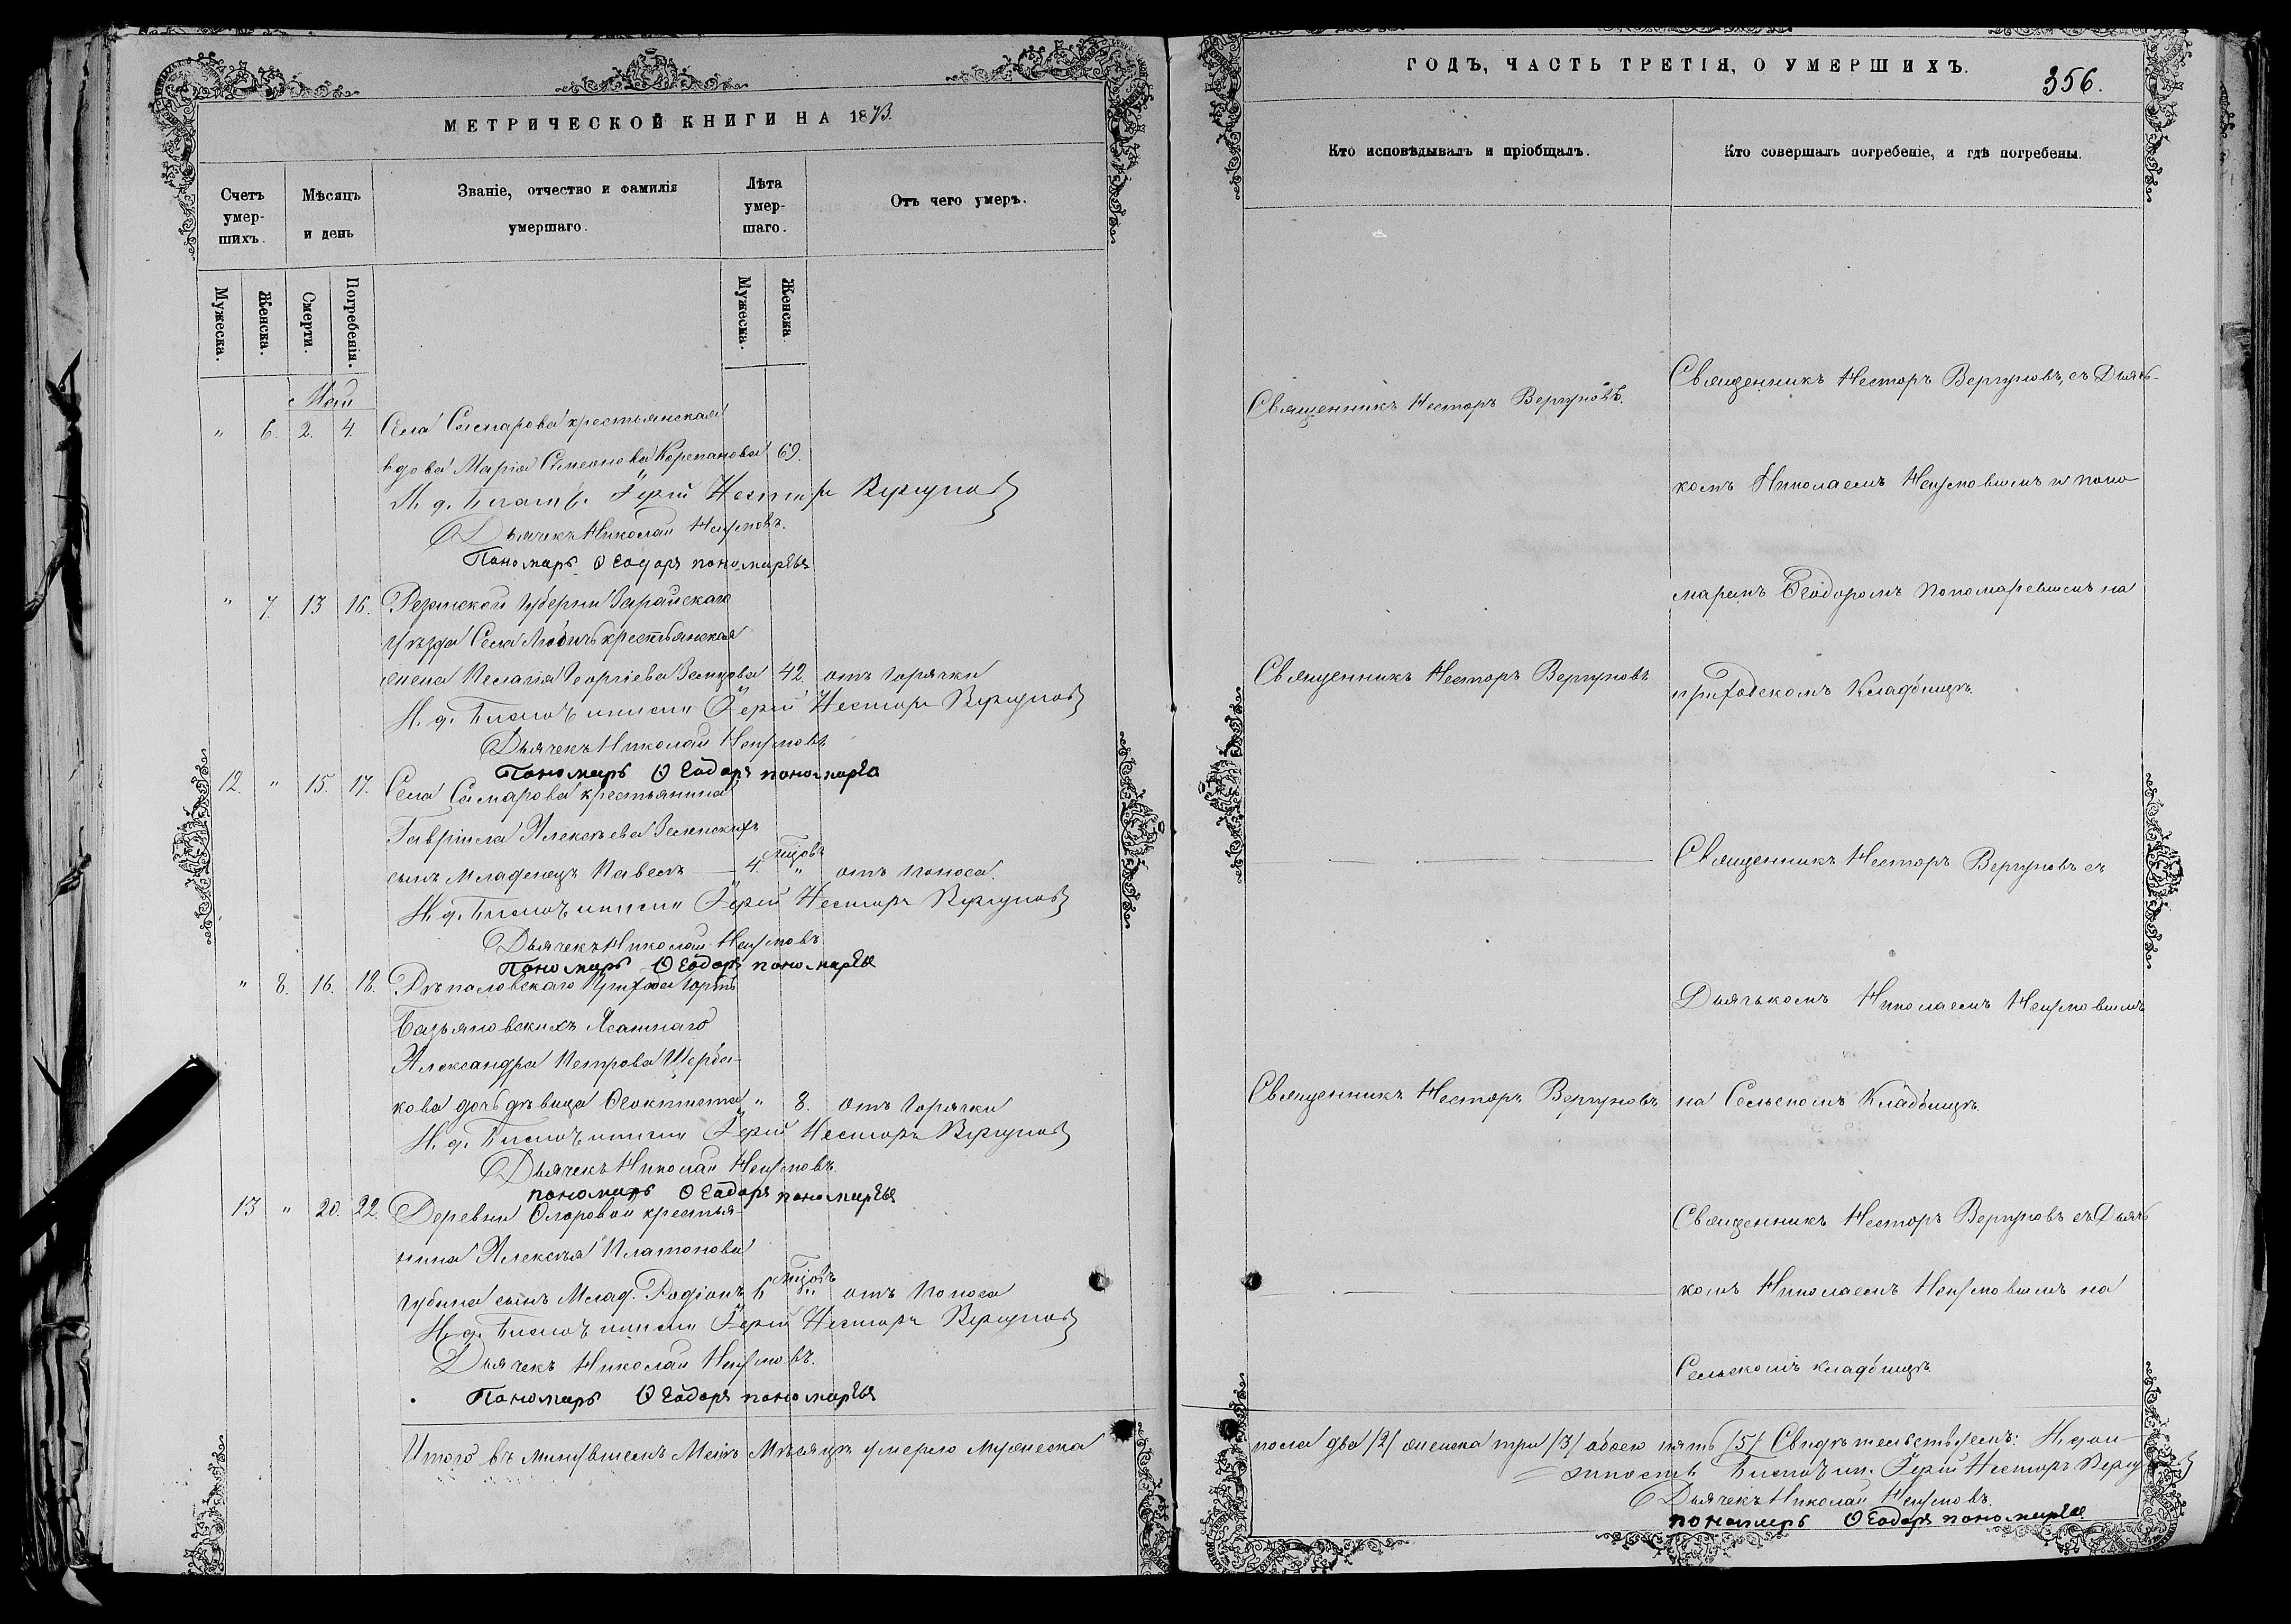 МЕТРИЧЕСКОЙ КНИГИ НА 1873.
Счетъ умер-шихъ.
Мѣсяцъ и день
Званіе, отчество и фамилія умершаго.
Лѣта умер-шаго.
Отъ чего умеръ.
Мужеска.
Женска.
Смерти.
Погребенія.
Мужеска.
Женска.
Май
" 6. 2. 4. Села Самарова крестьянская
вдова Марія Симеонова Корепанова 69.
Іерей Несторъ Вергуновъ
Дьячекъ Николай Наумовъ.
Пономарь Ѳеодоръ пономаревъ
" 7. 13 16. Резанской Губерніи Зарайскаго
Уѣзда Села Любичь крестьянская
жена Пелагія Георгіева Земцова 42. отъ горячки
Н. д. Благочиннаго Іерей Несторъ Вергуновъ
Дьячекъ Николай Наумовъ
Пономарь Ѳеодоръ пономарев
12. " 15. 17. Села Самарова крестьянина
Гавріила Алексѣева Зенковскихъ
сынъ младенецъ Павелъ 4. " отъ поноса.
Н. д. Благочиннаго Іерей Несторъ Вергуновъ
Дьячекъ Николай Наумовъ
Пономарь Ѳеодоръ пономаревъ
" 8. 16. 18. Рѣполовскаго Прихода Юртъ
Базьяновскихъ Ясашнаго
Александра Петрова Щерба-
кова дочь дѣвица Ѳеоктиста " 8. отъ горячки
Н. д. Благочиннаго Іерей Несторъ Вергуновъ
Дьячекъ Николай Наумовъ.
пономарь Ѳеодоръ пономаревъ
13 " 20. 22. Деревни крестья-
нина Алексѣя Платонова
Губина сынъ Млад. Родіонъ " отъ поноса
Н. д. Благочиннаго Іерей Несторъ Вергуновъ
Дьячекъ Николай Наумовъ.
Пономарь Ѳеодоръ пономаревъ
Итого въ минувшемъ Маѣ Мѣсяцѣ умерло мужеска
ГОДЪ, ЧАСТЬ ТРЕТІЯ, О УМЕРШИХЪ.
356.
Кто исповѣдывалъ и пріобщалъ.
Кто совершалъ погребеніе, и гдѣ погребены.
Священникъ Несторъ Вергуновъ.
Священникъ Несторъ Вергуновъ, съ Дьяч-
комъ Николаемъ Наумовымъ и поно-
маремъ Ѳеодоромъ Пономаревымъ на
Священникъ Несторъ Вергуновъ
приходскомъ Кладбищѣ.
Священникъ Несторъ Вергуновъ съ
Дьячькомъ Николаемъ Наумовымъ
Священникъ Несторъ Вергуновъ
на Сельскомъ Кладбищѣ.
Священникъ Несторъ Вергуновъ съ Дьяч
комъ Николаемъ Наумовымъ на
Сельскомъ кладбищѣ.
пола два /2/ женска три /3/ обоего пять /5/ Свидѣтельствуемъ: И. дол-
жность Благочин. Іерей Несторъ Вергуновъ
Дьячекъ Николай Наумовъ.
пономарь Ѳеодоръ пономарев